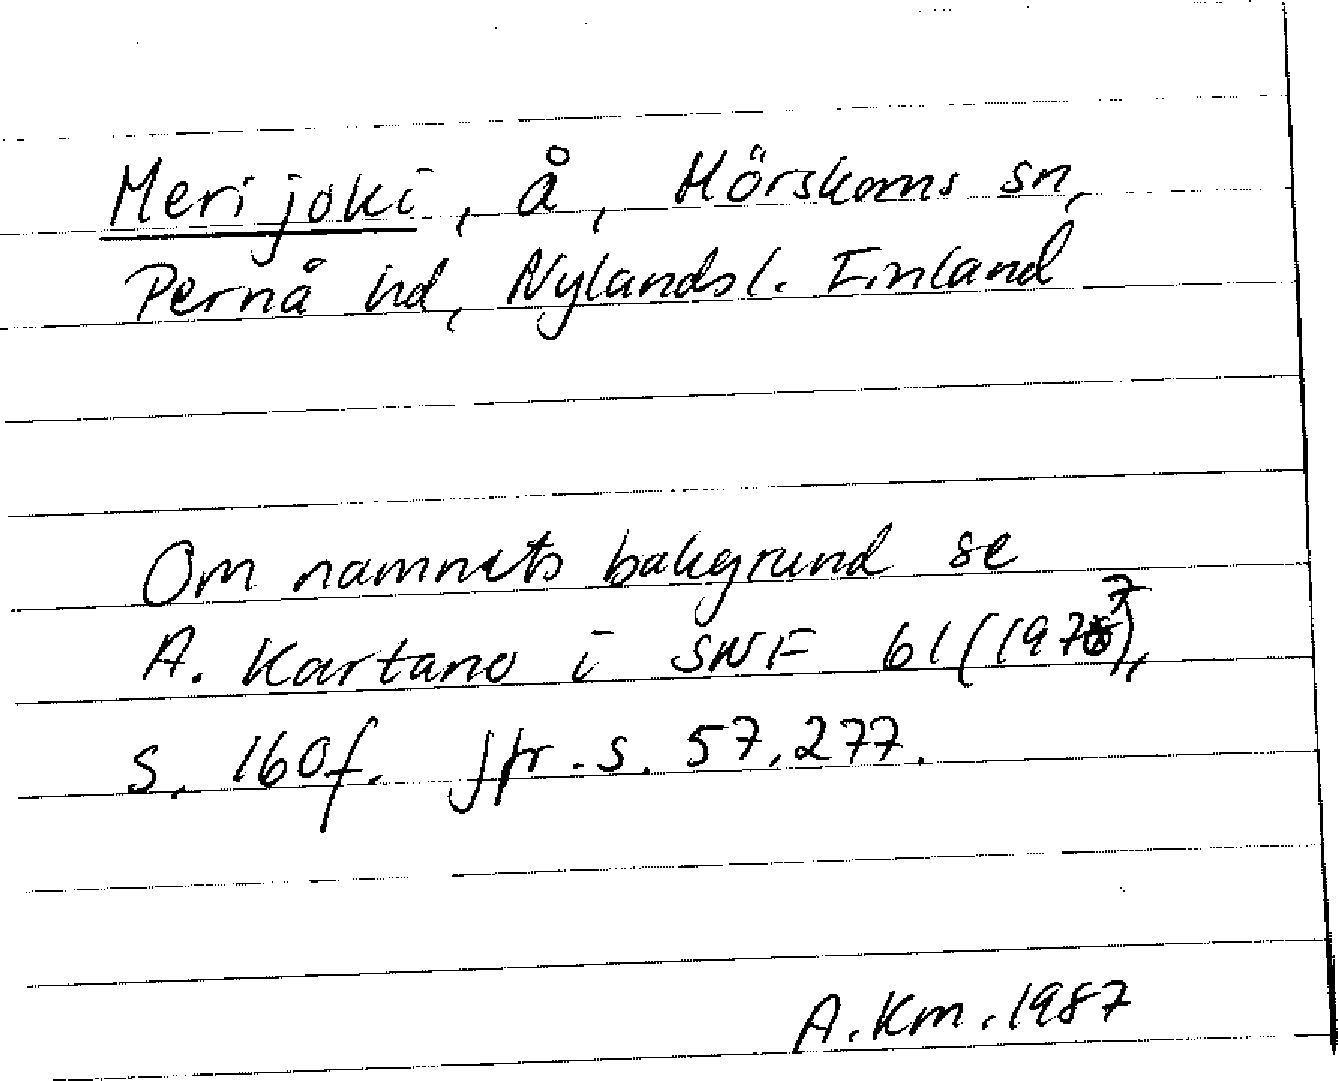 Merijoki, å, Mörskoms sn,
Pernå hd, Nylandsl. Finland
Om namnets bakgrund se
A. Kartano i SNF 61 (1977),
s. 160f. Jfr. s. 57, 277.
A. Km. 1987